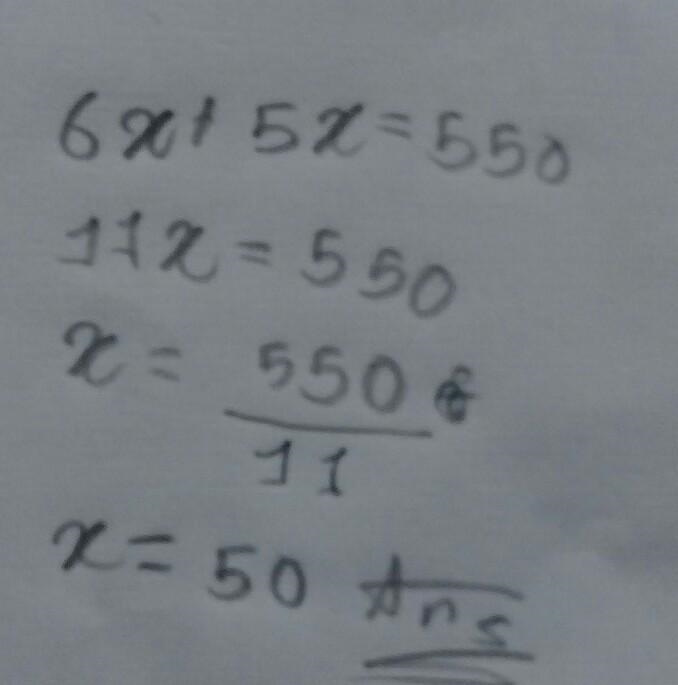 6x+ 5x=550
11x = 550
x = 550
11
x = 50 Ans